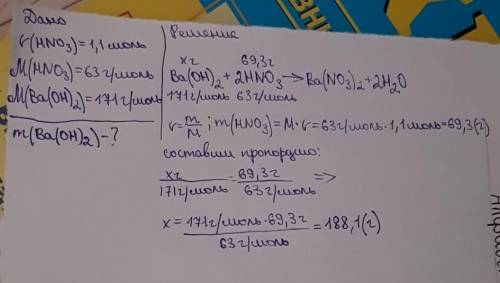 Дано
ν(HNO₃)=1,1 моль
M(HNO₃)=63 г/моль
M(Ba(OH)₂)=171 г/моль
m(Ba(OH)₂)-?
Решение
xг 69,3г
Ba(OH)₂+2HNO₃→Ba(NO₃)₂+2H₂O
171г/моль 63г/моль
ν=m/M; m(HNO₃)=M·ν=63г/моль·1,1моль=69,3(г)
составим пропорцию:
xг/171г/моль=69,3г/63г/моль =>
x=171г/моль·69,3г/63г/моль=188,1(г)